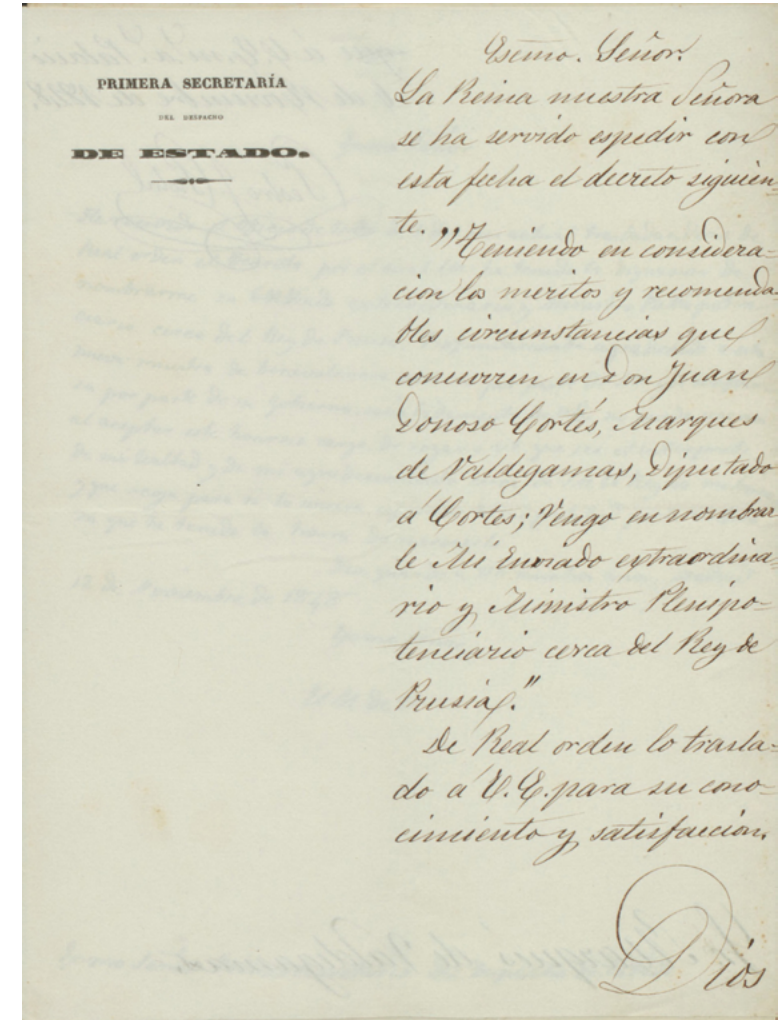 PRIMERA SECRETARÍA
DEL DESPACHO
DE ESTADO.
Escmo. Señor.
La Reina nuestra Señora
se ha servido espedir con
esta fecha el decreto siguien-
te. „Teniendo en considera-
cion los meritos y recomenda-
bles circunstancias que
concurren en Don Juan
Donoso Cortés, Marques
de Valdegamas, Diputado
á Cortes; Vengo en nombrar
le Mi Enviado extraordina-
rio y Ministro Plenipo-
tenciario cerca del Rey de
Prusia."
De Real orden lo trasla-
do á V. E. para su cono-
cimiento y satisfaccion.
Dios